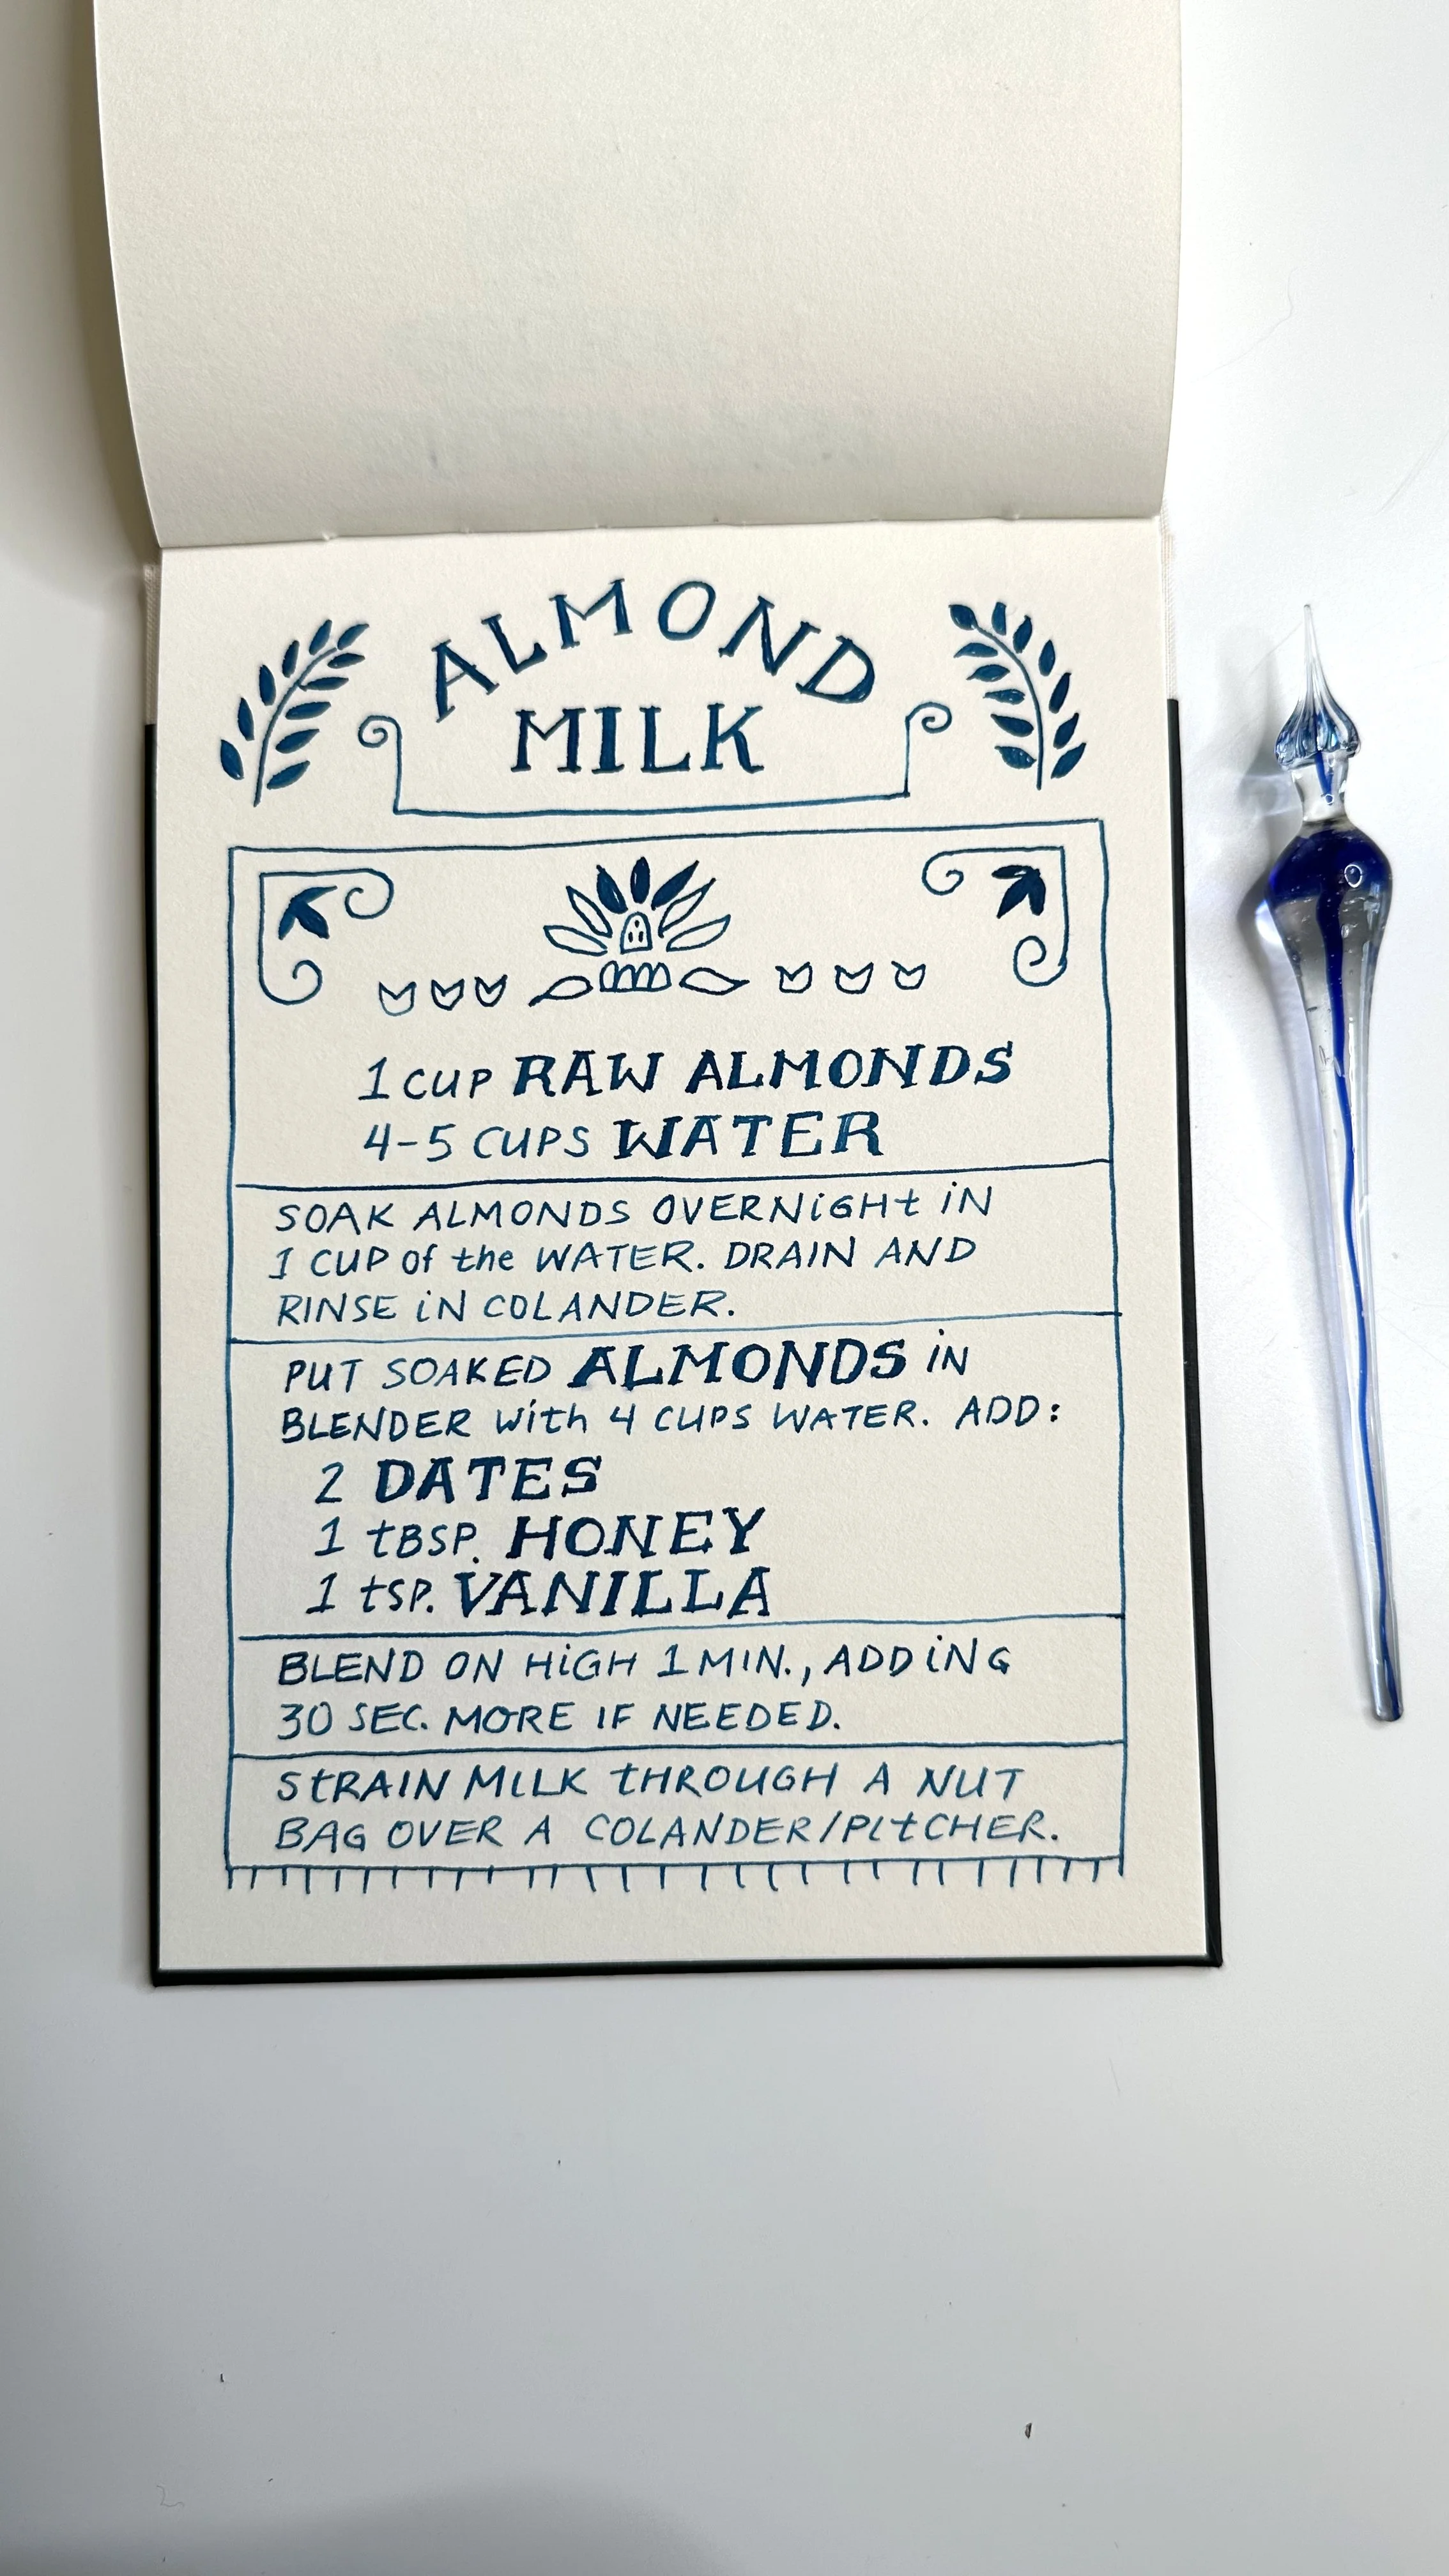 ALMOND
MILK
1 CUP RAW ALMONDS
4-5 CUPS WATER
SOAK ALMONDS OVERNiGHt iN
1 CUP of the WATER. DRAIN AND
RINSE iN COLANDER.
PUT SOAKED ALMONDS iN
BLENDER with 4 CUPS WATER. ADD:
2 DATES
1 tBSP. HONEY
1 tSP. VANILLA
BLEND ON HiGH 1 MIN., ADDiNG
30 SEC. MORE IF NEEDED.
StRAIN MILK tHROUGH A NUT
BAG OVER A COLANDER/PItCHER.